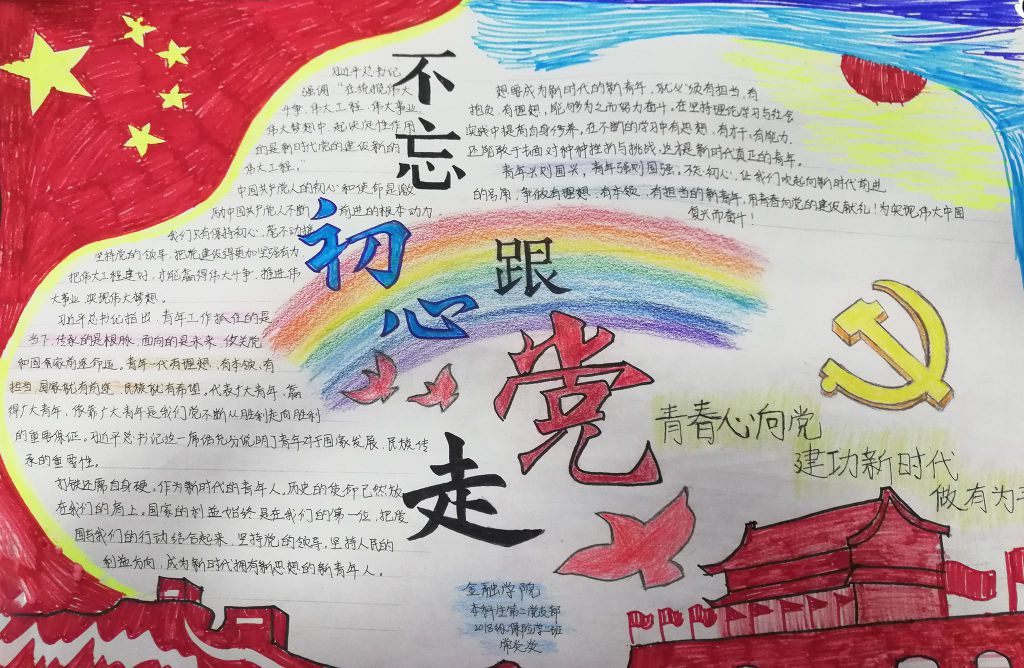 不忘
初心
跟
党
走
习近平总书记
强调:“在统揽伟大
斗争、伟大工程、伟大事业、
伟大梦想中,起决定性作用
的是新时代党的建设新的
伟大工程。”
中国共产党人的初心和使命是激
励中国共产党人不断前进的根本动力。
我们只有保持初心、毫不动摇
坚持党的领导、把党建设得更加坚强有力
把伟大工程建好,才能赢得伟大斗争、推进伟
大事业、实现伟大梦想。
习近平总书记指出,青年工作抓住的是
当下,传承的是根脉,面向的是未来,攸关党
和国家前途命运。青年一代有理想、有本领、有
担当,国家就有前途,民族就有希望。代表广大青年,赢
得广大青年,依靠广大青年是我们党不断从胜利走向胜利
的重要保证。习近平总书记这一席话充分说明了青年对于国家发展、民族传
承的重要性。
打铁还需自身硬。作为新时代的青年人,历史的使命已然放
在我们的肩上。国家的利益始终是在我们的第一位,把爱
国与我们的行动结合起来,坚持党的领导,坚持人民的
利益方向,成为新时代拥有新思想的新青年人。
想要成为新时代的新青年,就必须有担当、有
抱负、有理想,能够为之而努力奋斗。在坚持理论学习与社会
实践中提高自身修养。在不断的学习中有思想,有才干,有能力,
还要敢于去面对种种挫折与挑战,这才是新时代真正的青年。
青年兴则国兴,青年强则国强。不忘初心,让我们吹起向新时代前进
的号角,争做有理想、有本领、有担当的新青年,用青春向党的建设献礼!为实现伟大中国
复兴而奋斗!
青春心向党
建功新时代
做有为
金融学院
本科生第二党支部
2018级保险学一班